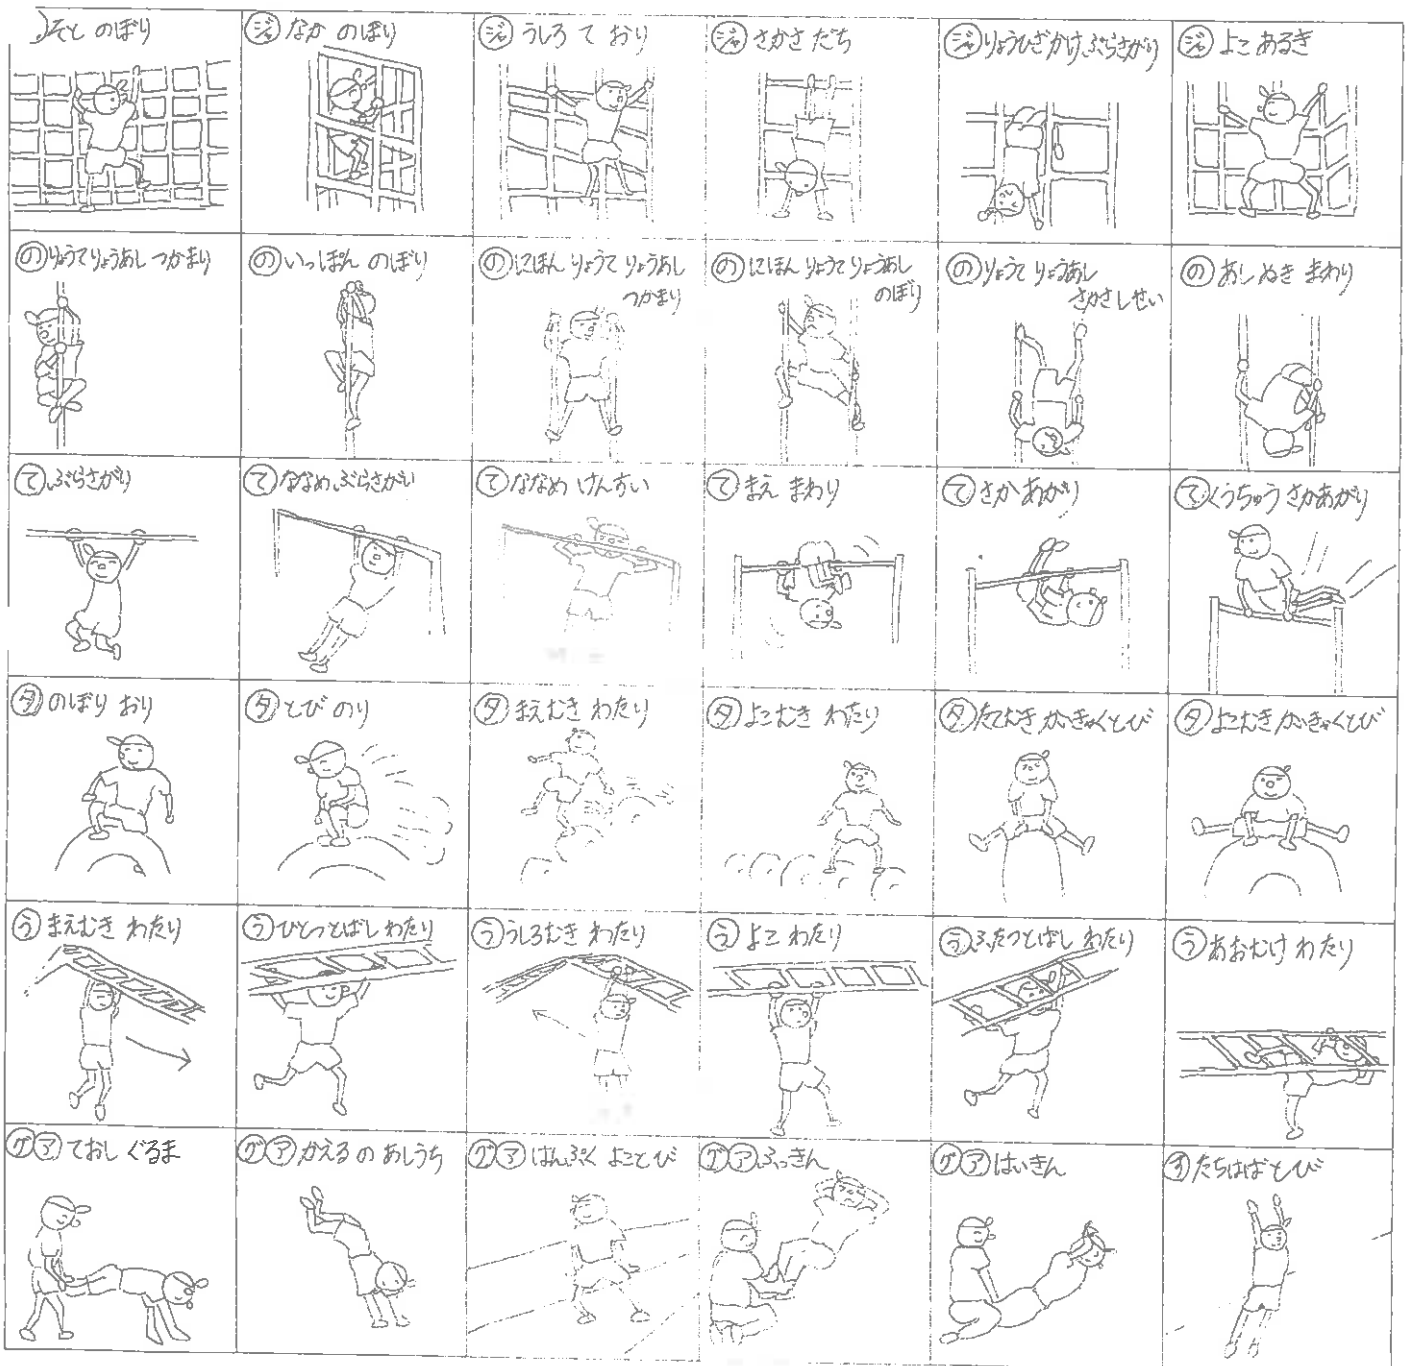 そと のぼり
ジャ なか のぼり
ジャ うしろ て おり
ジャ さかさ だち
ジャ りょうひざかけ ぶらさがり
ジャ よこ あるき
の りょうて りょうあし つかまり
の いっぽん のぼり
の にほん りょうて りょうあし
つかまり
の にほん りょうて りょうあし
のぼり
の りょうて りょうあし
さかさしせい
の あし ぬき まわり
て ぶらさがり
て ななめ ぶらさがり
て ななめ けんすい
て まえ まわり
て さか あがり
て くうちゅう さかあがり
タ のぼり おり
タ とび のり
タ まえむき わたり
タ よこむき わたり
タ たてむき かいきゃくとび
タ よこむき かいきゃくとび
う まえむき わたり
う ひとつとばし わたり
う うしろむき わたり
う よこ わたり
う ふたつとばし わたり
う あおむけ わたり
グ ア ておし ぐるま
グ ア かえる の あしうち
グ ア はんぷく よことび
グ ア ふっきん
グ ア はいきん
す たちはばとび